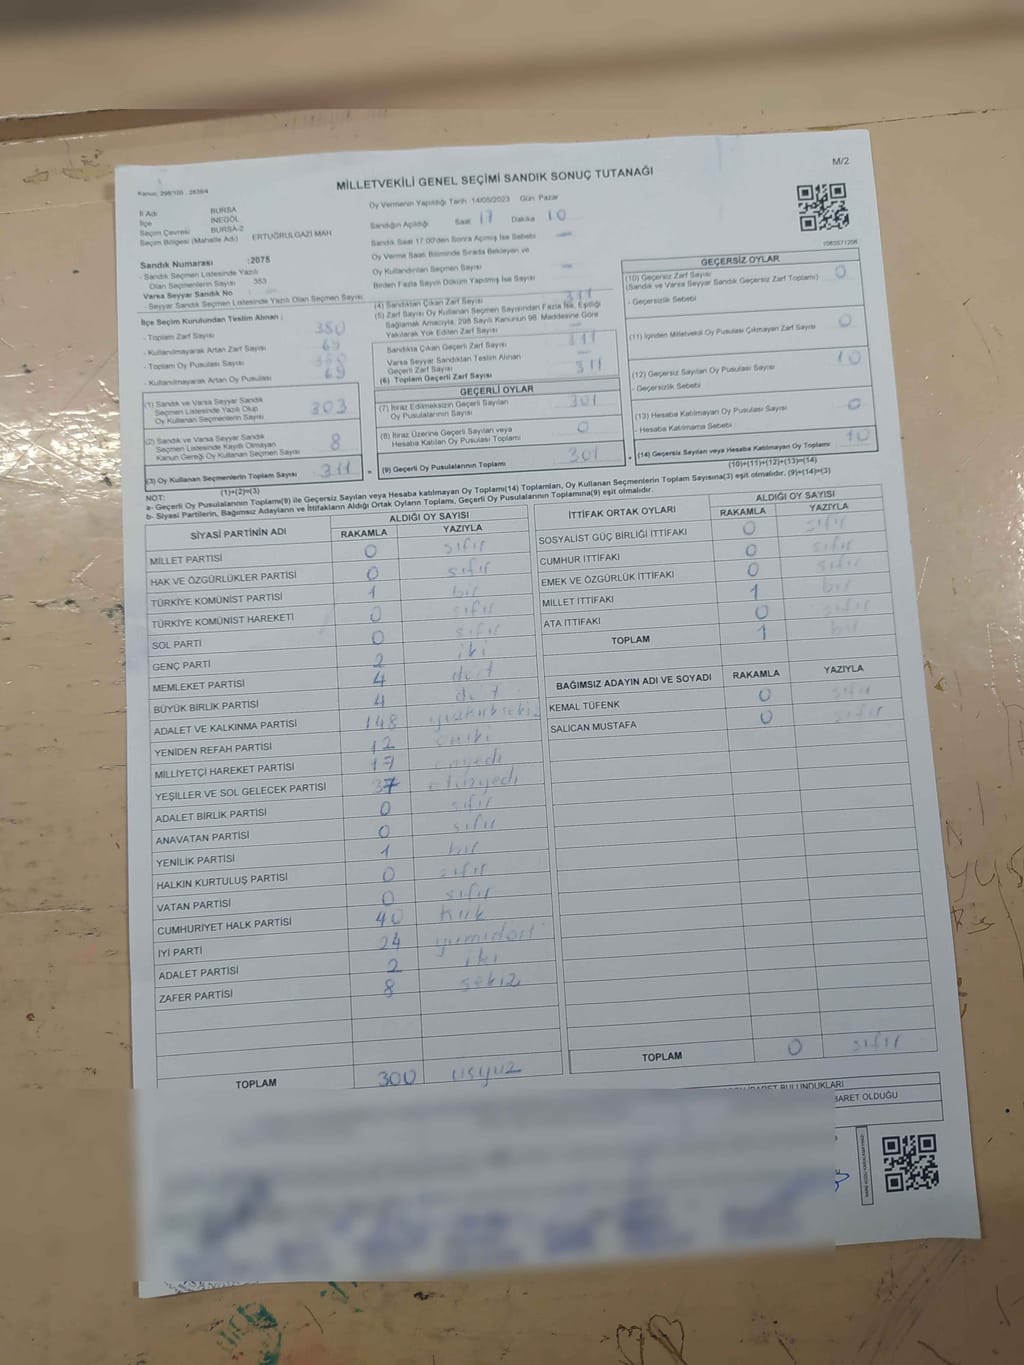 M/2
Kanun: 298/105 , 2839/4
MİLLETVEKİLİ GENEL SEÇİMİ SANDIK SONUÇ TUTANAĞI
İl Adı BURSA
İlçe İNEGÖL
Seçim Çevresi BURSA-2
Seçim Bölgesi (Mahalle Adı) ERTUĞRULGAZİ MAH
Sandık Numarası :2075
- Sandık Seçmen Listesinde Yazılı
Olan Seçmenlerin Sayısı 353
Varsa Seyyar Sandık No
- Seyyar Sandık Seçmen Listesinde Yazılı Olan Seçmen Sayısı
İlçe Seçim Kurulundan Teslim Alınan :
- Toplam Zarf Sayısı 380
- Kullanılmayarak Artan Zarf Sayısı 69
- Toplam Oy Pusulası Sayısı 380
- Kullanılmayarak Artan Oy Pusulası 69
(1) Sandık ve Varsa Seyyar Sandık
Seçmen Listesinde Yazılı Olup
Oy Kullanan Seçmenlerin Sayısı 303
(2) Sandık ve Varsa Seyyar Sandık
Seçmen Listesinde Kayıtlı Olmayan
Kanun Gereği Oy Kullanan Seçmen Sayısı 8
(3) Oy Kullanan Seçmenlerin Toplam Sayısı 311 =
(1)+(2)=(3)
Oy Vermenin Yapıldığı Tarih 14/05/2023 Gün: Pazar
Sandığın Açıldığı Saat 17 Dakika 10
Sandık Saat 17:00'den Sonra Açılmış İse Sebebi —
Oy Verme Saati Bitiminde Sırada Bekleyen ve
Oy Kullandırılan Seçmen Sayısı —
Birden Fazla Sayım Döküm Yapılmış İse Sayısı
(4) Sandıktan Çıkan Zarf Sayısı 311
(5) Zarf Sayısı Oy Kullanan Seçmen Sayısından Fazla İse, Eşitliği
Sağlamak Amacıyla, 298 Sayılı Kanunun 98. Maddesine Göre
Yakılarak Yok Edilen Zarf Sayısı —
Sandıkta Çıkan Geçerli Zarf Sayısı 311
Varsa Seyyar Sandıktan Teslim Alınan
Geçerli Zarf Sayısı —
(6) Toplam Geçerli Zarf Sayısı 311
GEÇERLİ OYLAR
(7) İtiraz Edilmeksizin Geçerli Sayılan
Oy Pusulalarının Sayısı 301
(8) İtiraz Üzerine Geçerli Sayılan veya
Hesaba Katılan Oy Pusulası Toplamı 0
(9) Geçerli Oy Pusulalarının Toplamı 301 +
1083571206
GEÇERSİZ OYLAR
(10) Geçersiz Zarf Sayısı 0
(Sandık ve Varsa Seyyar Sandık Geçersiz Zarf Toplamı)
- Geçersizlik Sebebi
(11) İçinden Milletvekili Oy Pusulası Çıkmayan Zarf Sayısı 0
(12) Geçersiz Sayılan Oy Pusulası Sayısı 10
- Geçersizlik Sebebi
(13) Hesaba Katılmayan Oy Pusulası Sayısı 0
- Hesaba Katılmama Sebebi
(14) Geçersiz Sayılan veya Hesaba Katılmayan Oy Toplamı 10
(10)+(11)+(12)+(13)=(14)
NOT:
a- Geçerli Oy Pusulaları Toplamı(9) ile Geçersiz Sayılan veya Hesaba katılmayan Oy Toplamı(14) Toplamları, Oy Kullanan Seçmenlerin Toplam Sayısına(3) eşit olmalıdır. (9)+(14)=(3)
b- Siyasi Partilerin, Bağımsız Adayların ve İttifakların Aldığı Ortak Oyların Toplamı, Geçerli Oy Pusulalarının Toplamına(9) eşit olmalıdır.
SİYASİ PARTİNİN ADI ALDIĞI OY SAYISI
RAKAMLA YAZIYLA
MİLLET PARTİSİ 0 sıfır
HAK VE ÖZGÜRLÜKLER PARTİSİ 0 sıfır
TÜRKİYE KOMÜNİST PARTİSİ 1 bir
TÜRKİYE KOMÜNİST HAREKETİ 0 sıfır
SOL PARTİ 0 sıfır
GENÇ PARTİ 2 iki
MEMLEKET PARTİSİ 4 dört
BÜYÜK BİRLİK PARTİSİ 4 dört
ADALET VE KALKINMA PARTİSİ 148 yüzkırksekiz
YENİDEN REFAH PARTİSİ 12 oniki
MİLLİYETÇİ HAREKET PARTİSİ 17 onyedi
YEŞİLLER VE SOL GELECEK PARTİSİ 37 otuzyedi
ADALET BİRLİK PARTİSİ 0 sıfır
ANAVATAN PARTİSİ 0 sıfır
YENİLİK PARTİSİ 1 bir
HALKIN KURTULUŞ PARTİSİ 0 sıfır
VATAN PARTİSİ 0 sıfır
CUMHURİYET HALK PARTİSİ 40 kırk
İYİ PARTİ 24 yirmidört
ADALET PARTİSİ 2 iki
ZAFER PARTİSİ 8 sekiz
TOPLAM 300 üçyüz
İTTİFAK ORTAK OYLARI ALDIĞI OY SAYISI
RAKAMLA YAZIYLA
SOSYALİST GÜÇ BİRLİĞİ İTTİFAKI 0 sıfır
CUMHUR İTTİFAKI 0 sıfır
EMEK VE ÖZGÜRLÜK İTTİFAKI 0 sıfır
MİLLET İTTİFAKI 1 bir
ATA İTTİFAKI 0 sıfır
TOPLAM 1 bir
BAĞIMSIZ ADAYIN ADI VE SOYADI RAKAMLA YAZIYLA
KEMAL TÜFENK 0 sıfır
SALİCAN MUSTAFA 0 sıfır
TOPLAM 0 sıfır
BULUNDUKLARI
BARET OLDUĞU